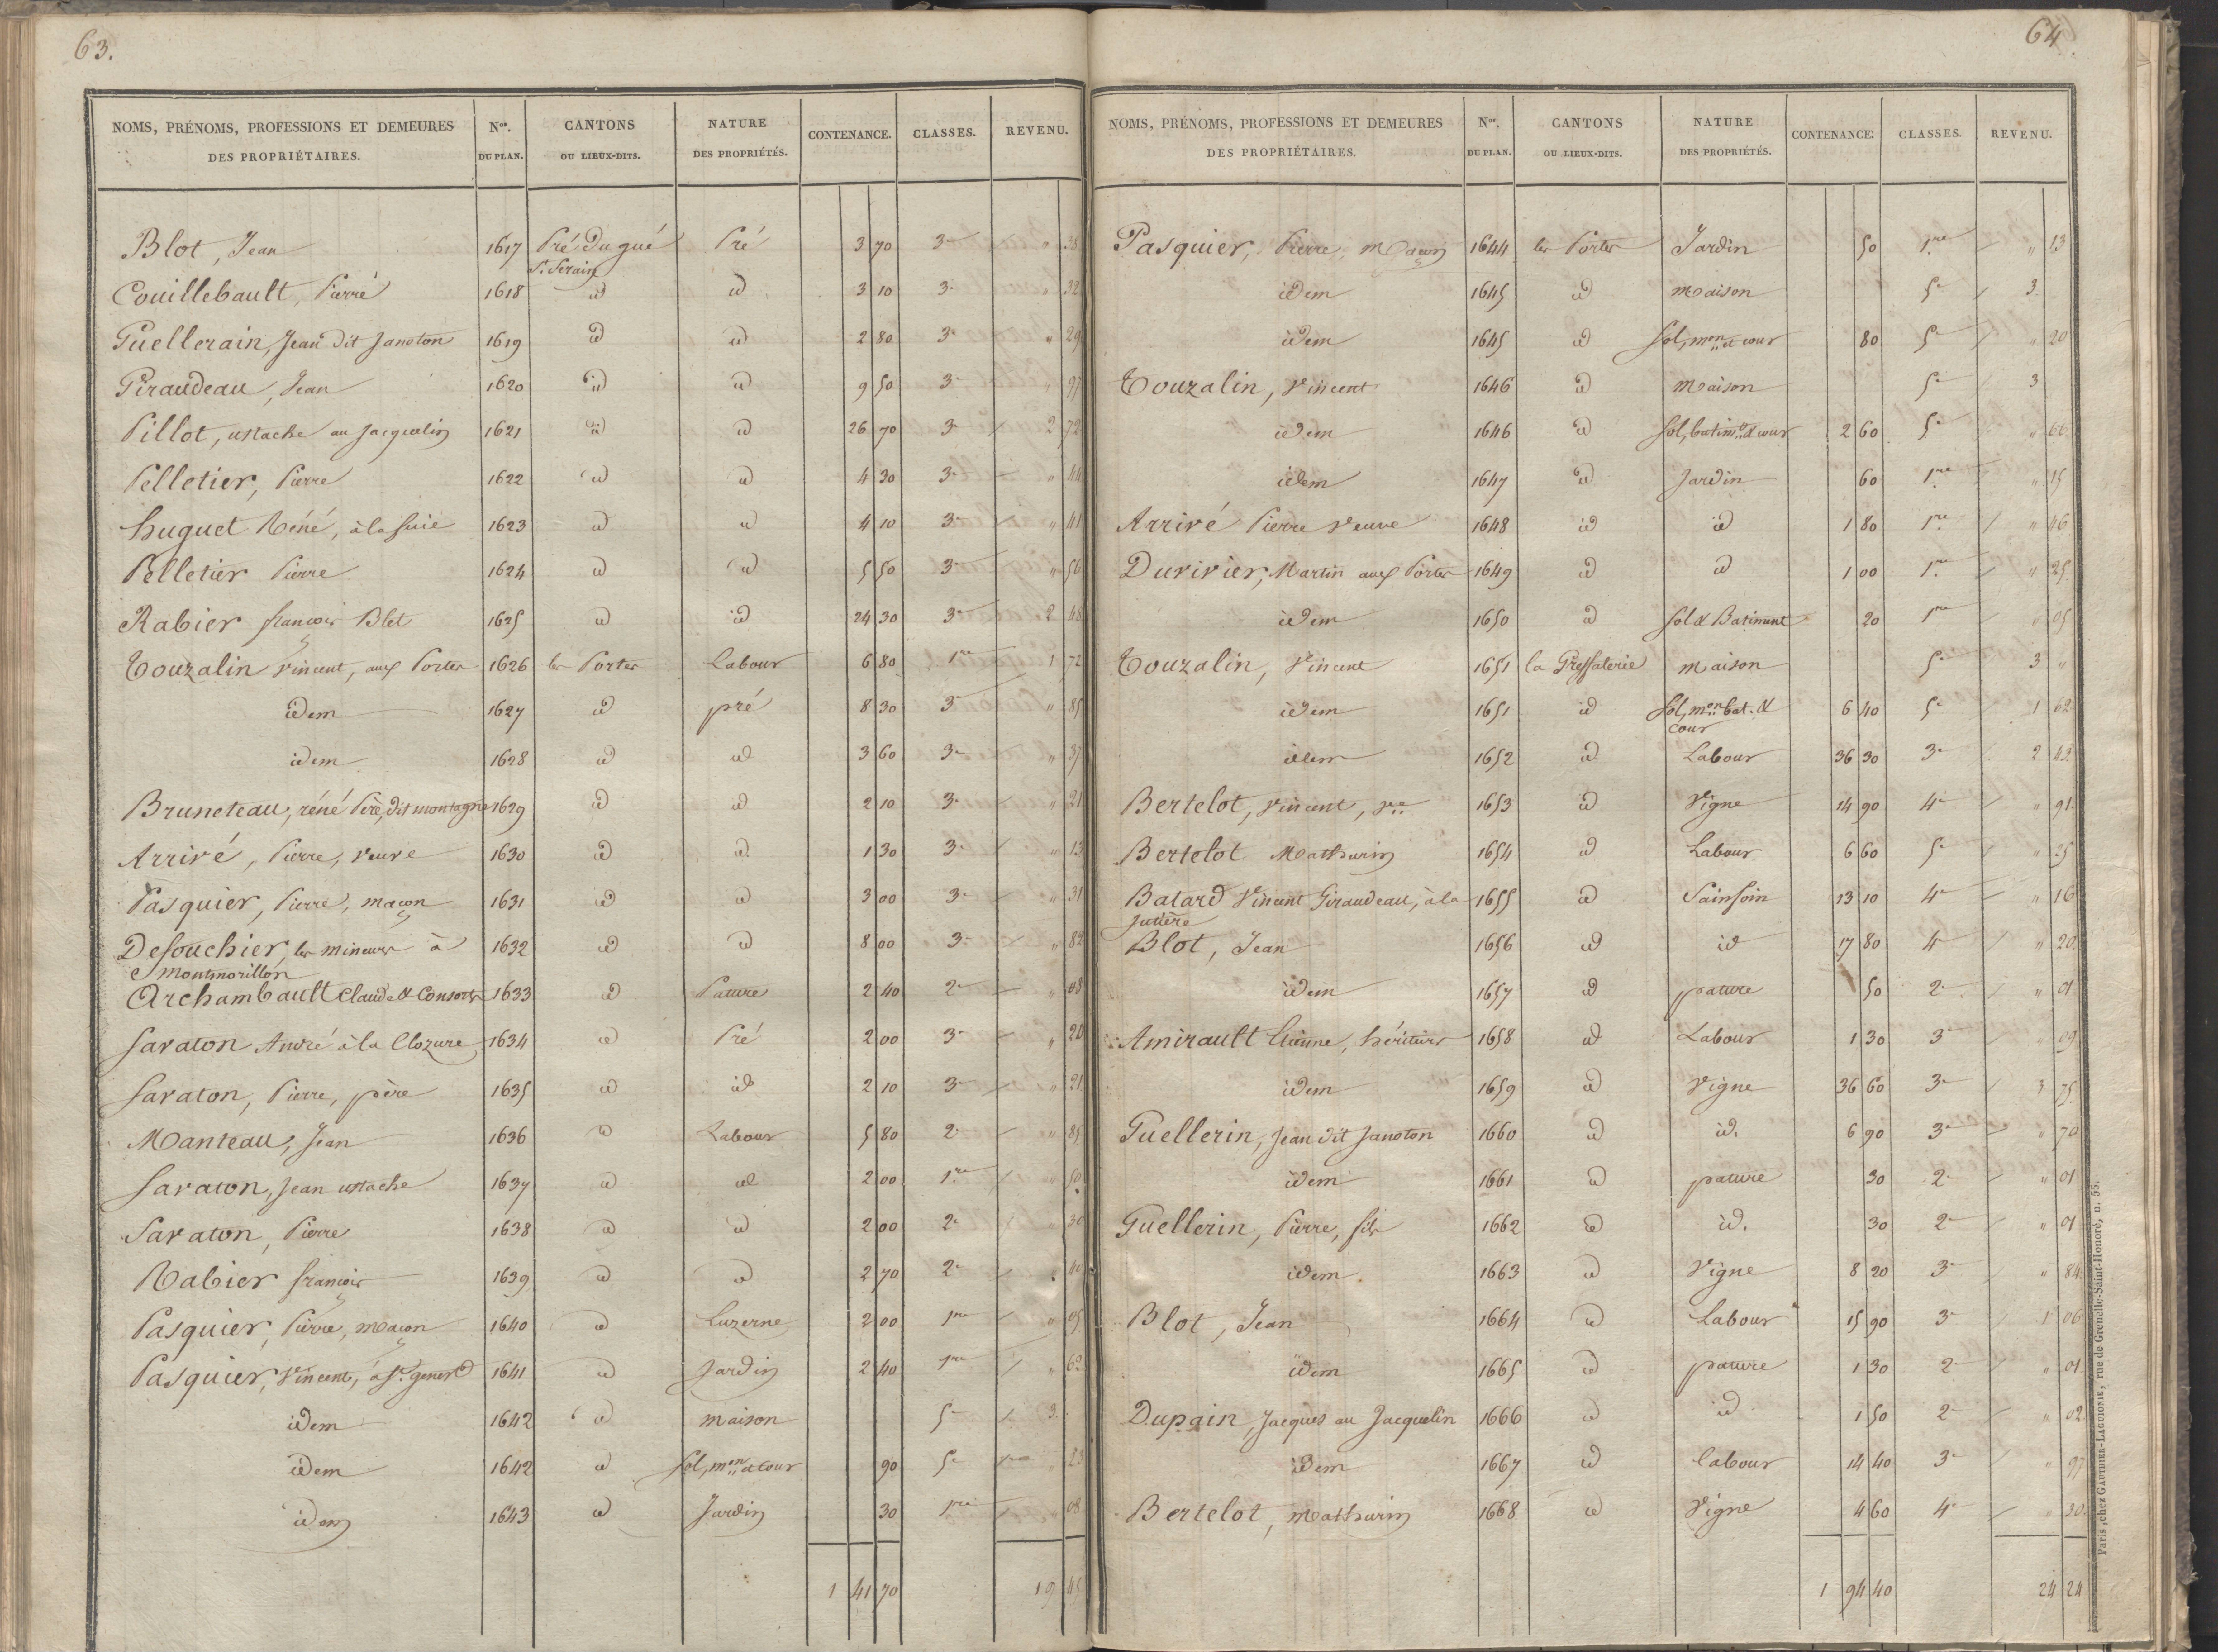 63.
NOMS, PRÉNOMS, PROFESSIONS ET DEMEURES DES PROPRIÉTAIRES. Nos. DU PLAN. CANTONS OU LIEUX-DITS. NATURE DES PROPRIÉTÉS. CONTENANCE. CLASSES. REVENU.
Blot, Jean 1617 Pré du gué Pré 3 70 3e " 38
St. Serain
Couillebault, Pierre 1618 id id 3 10 3e " 32
Guellerain, Jean dit Janoton 1619 id id 2 80 3e " 29
Giraudeau, Jean 1620 id id 9 50 3e " 97
Pillot, ustache au Jacquelin 1621 id id 26 70 3e 2 72
Pelletier, Pierre 1622 id id 4 30 3e " 44
huguet Réné, à la 1623 id id 4 10 3e " 41
Pelletier Pierre 1624 id id 5 50 3e " 56
Rabier françois Blet 1625 id id 24 30 3e 2 48
Touzalin Vincent, aux Portes 1626 les Portes Labour 6 80 1re 1 72
idem 1627 id pré 8 30 3e " 85
idem 1628 id id 3 60 3e " 37
Bruneteau, réné Père, dit montagne 1629 id id 2 10 3e " 21
Arrivé, Pierre, veuve 1630 id id 1 30 3e " 13
Pasquier, Pierre, maçon 1631 id id 3 00 3e " 31
Desouchier, les mineurs à 1632 id id 8 00 3e " 82
Montmorillon
Archambault Claude & Consorts 1633 id Pature 2 40 2e " 08
Savaton André à la Clozure 1634 id Pré 2 00 3e " 20
Savaton, Pierre, père 1635 id id 2 10 3e " 21
Manteau, Jean 1636 id Labour 5 80 2e " 85
Savaton, Jean ustache 1637 id id 2 00 1re " 50
Savaton, Pierre 1638 id id 2 00 2e " 30
Rabier françois 1639 id id 2 70 2e " 40
Pasquier, Pierre, maçon 1640 id Luzerne 2 00 1re " 05
Pasquier, Vincent, à St. 1641 id Jardin 2 40 1re " 62
idem 1642 id maison 5e 3.
idem 1642 id Sol, mon & cour 90 5e " 23
idem 1643 id Jardin 30 1re " 08
1 41 70 19 45
64.
NOMS, PRÉNOMS, PROFESSIONS ET DEMEURES DES PROPRIÉTAIRES. Nos. DU PLAN. CANTONS OU LIEUX-DITS. NATURE DES PROPRIÉTÉS. CONTENANCE. CLASSES. REVENU.
Pasquier, Pierre, Maçon 1644 les Portes Jardin 50 1re " 13
idem 1645 id maison 5e 3.
idem 1645 id Sol, mon & cour 80 5e " 20
Touzalin, Vincent 1646 id maison 5e 3
idem 1646 id Sol, batimt & cour 2 60 5e " 66
idem 1647 id Jardin 60 1re " 15
Arrivé Pierre Veuve 1648 id id 1 80 1re " 46
Durivier, Martin aux Portes 1649 id id 1 00 1re " 25
idem 1650 id Sol & Batiment 20 1re " 05
Touzalin, Vincent 1651 la Pressalerie maison 5e 3 "
idem 1651 id Sol, mon bat. & 6 40 5e 1 62
cour
idem 1652 id Labour 36 30 3e 2 43
Bertelot, Vincent, Ve 1653 id Vigne 14 90 4e " 91
Bertelot Mathurin 1654 id Labour 6 60 5e " 25
Batard Vincent Giraudeau, à la 1655 id Sainfoin 13 10 4e " 16
Jutière
Blot, Jean 1656 id id 17 80 4e " 20
idem 1657 id pature 50 2e " 01
Amirault Etienne, héritiers 1658 id Labour 1 30 3e " 09
idem 1659 id Vigne 36 60 3e 3 75
Guellerin, Jean dit Janoton 1660 id id. 6 90 3e " 70
idem 1661 id pature 30 2e " 01
Guellerin, Pierre, fils 1662 id id. 30 2e " 01
idem 1663 id Vigne 8 20 3e " 84
Blot, Jean 1664 id Labour 15 90 3e 1 06
idem 1665 id pature 1 30 2e " 01
Dupain, Jacques au Jacquelin 1666 id id 1 50 2e " 02
idem 1667 id labour 14 40 3e " 97
Bertelot, Mathurin 1668 id Vigne 4 60 4e " 30
1 94 40 24 24
Paris, chez GAUTHIER-LAGUIONIE, rue de Grenelle-Saint-Honoré, n. 55.